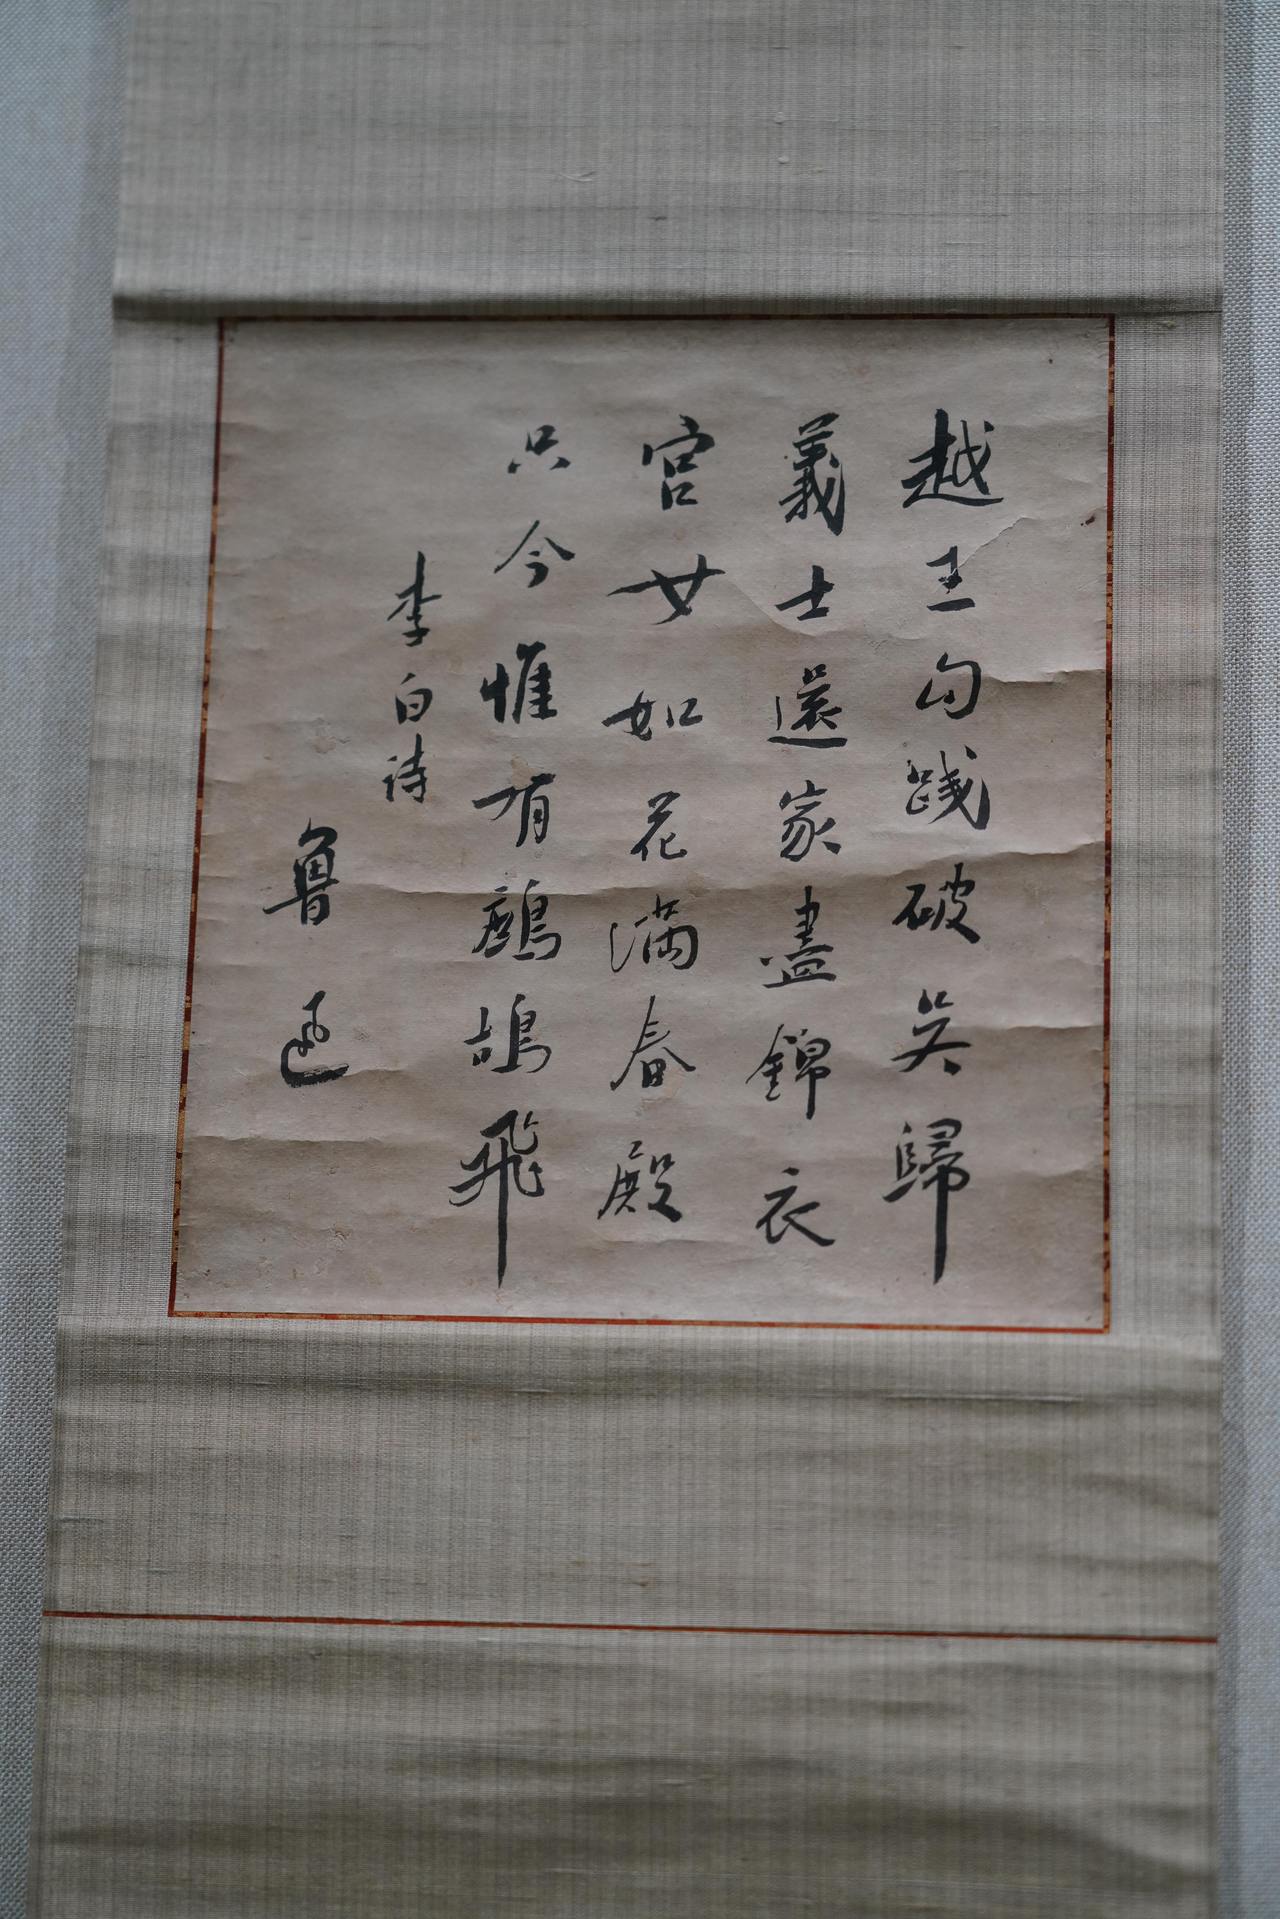 越王勾踐破吳歸
義士還家盡錦衣
宮女如花滿春殿
只今惟有鷓鴣飛
李白诗
魯迅